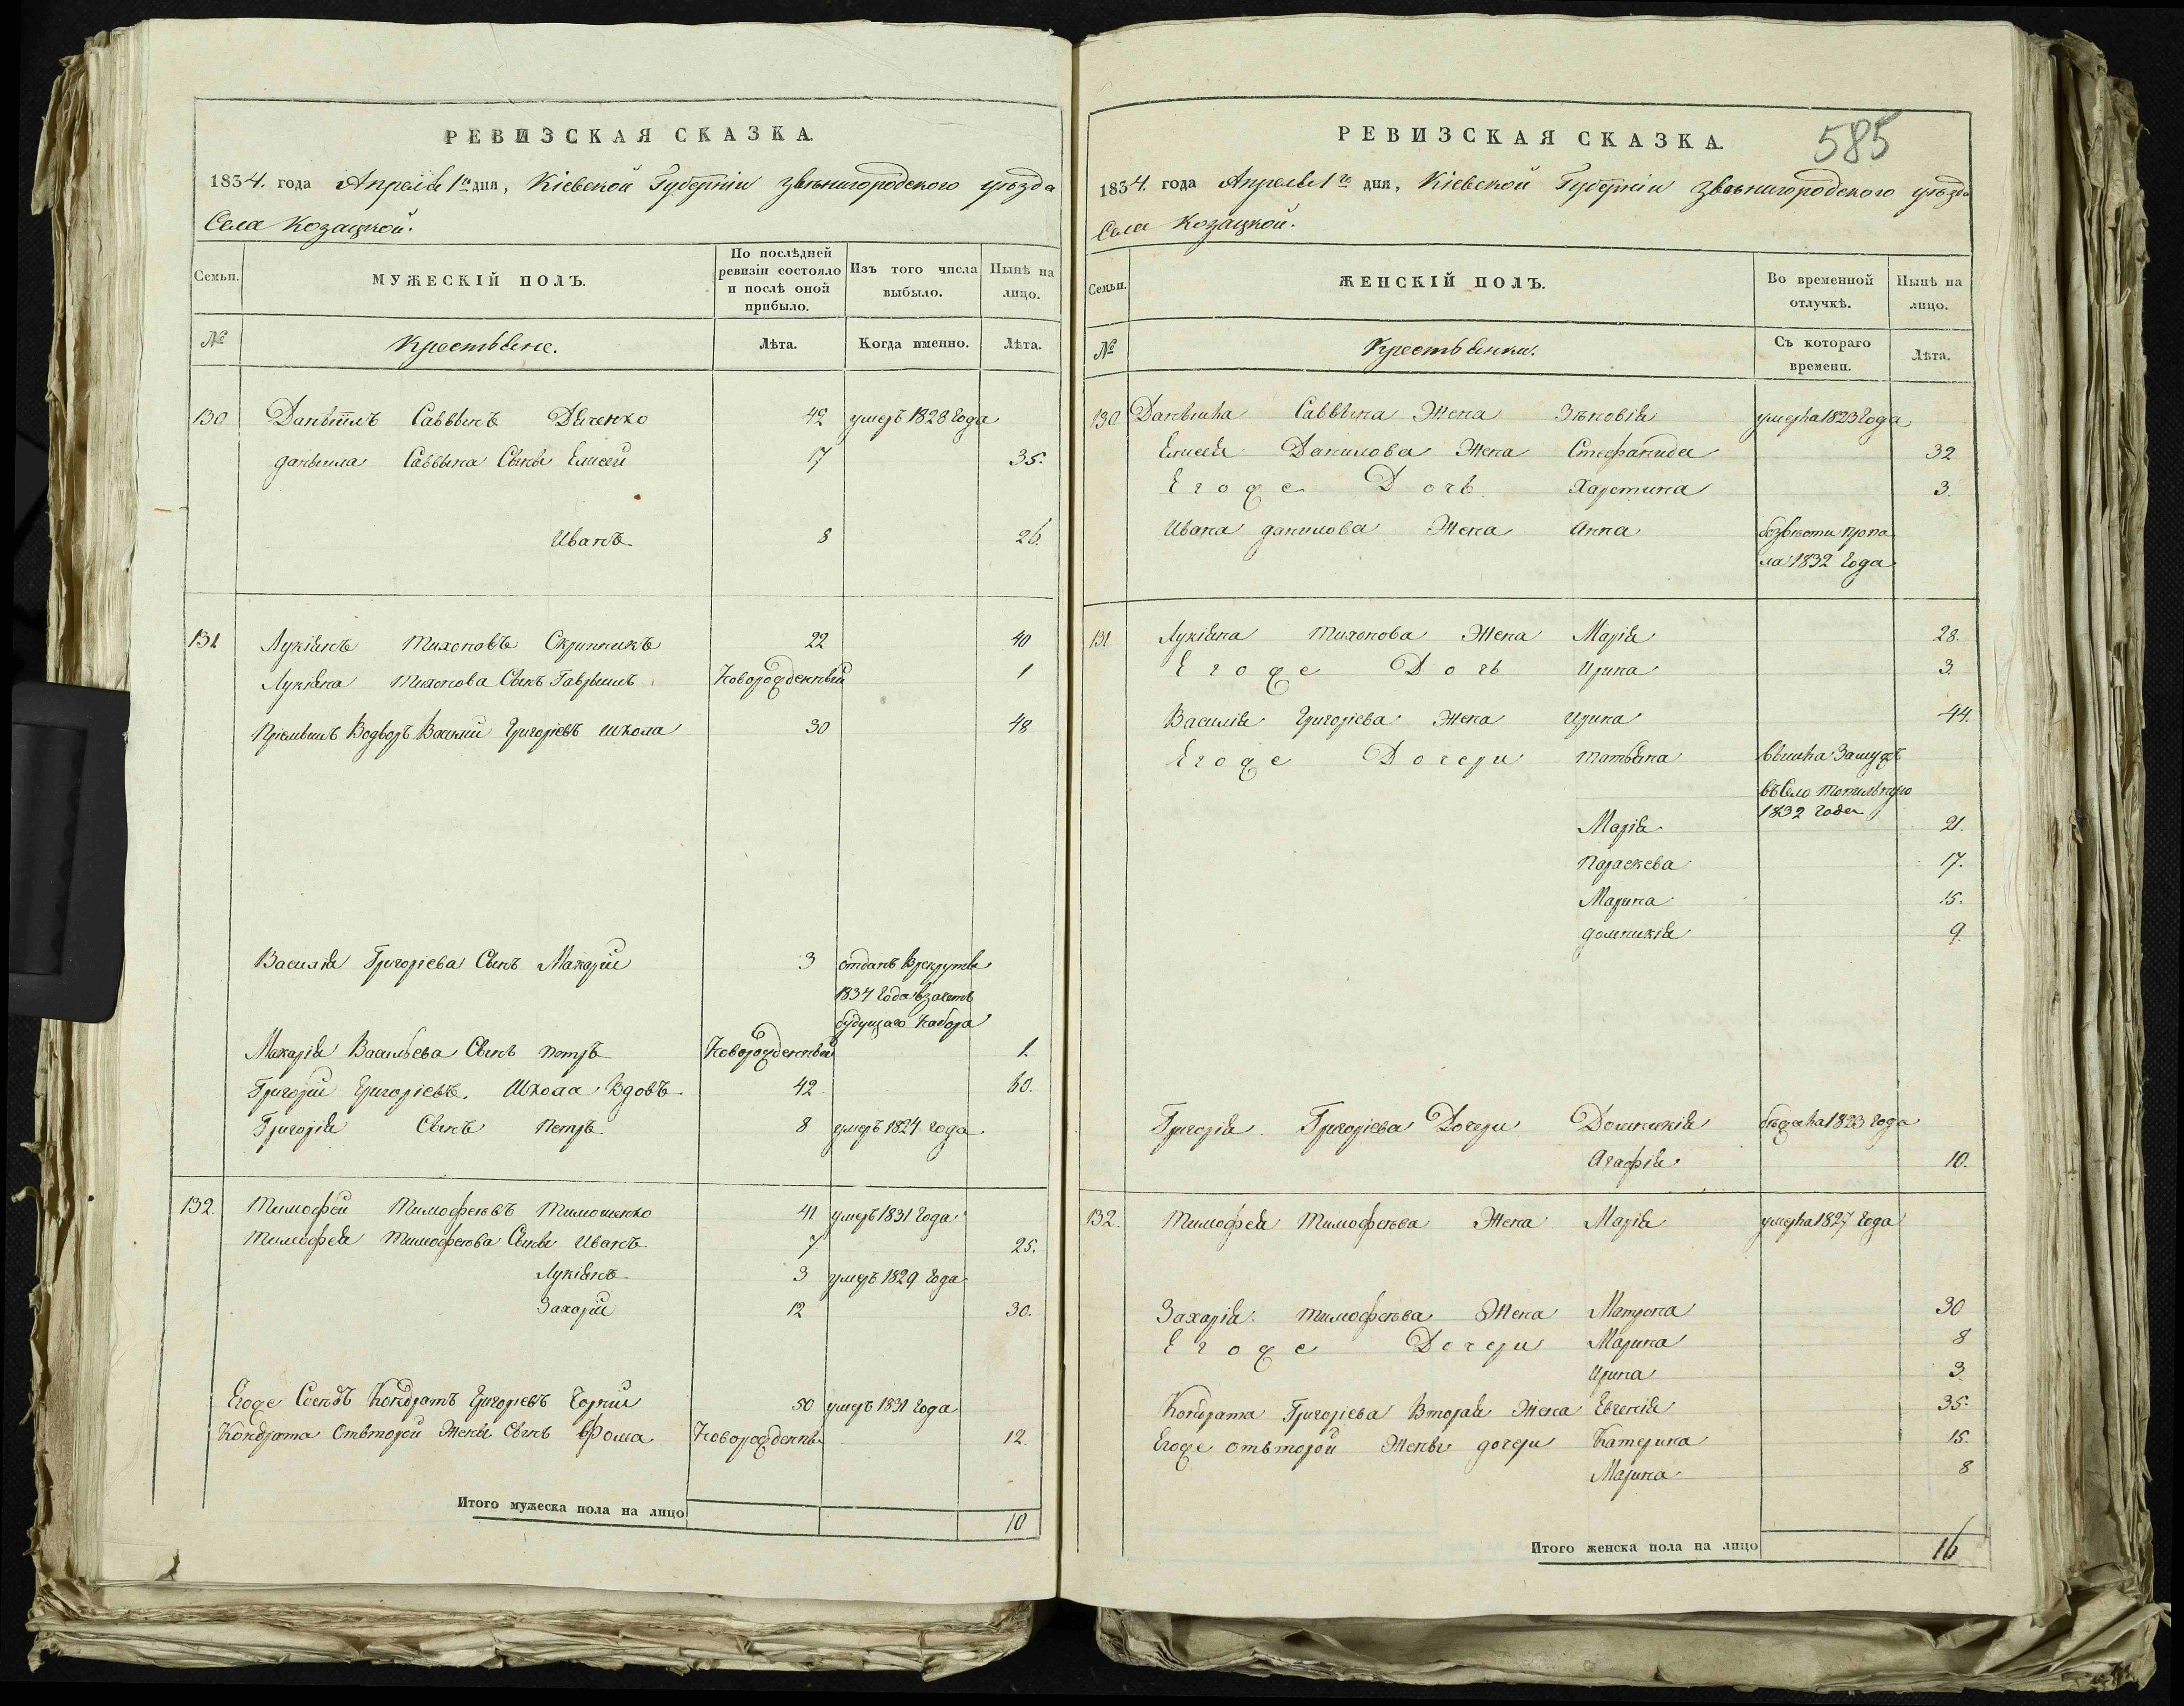 РЕВИЗСКАЯ СКАЗКА.
1834. года Апреля 1го дня, Кіевской Губерніи Звенигородского уѣзда
Села Козацкой.
Семьи.
МУЖЕСКІЙ ПОЛЪ.
По послѣдней ревизіи состояло и послѣ оной прибыло.
Изъ того числа выбыло.
Нынѣ на лицо.
№
Крестьяне.
Лѣта.
Когда именно.
Лѣта.
130 Даныилъ Саввынъ Дяченко 42 умеръ 1828 года
даныила Саввына Сыны Елисей 17 35.
Иванъ 8 26.
131 Лукіянъ Тихоновъ Скрипникъ 22 40
Лукіяна Тихонова Сынъ Гаврыилъ Новорожденный 1
Василий Григоріевъ Школа 30 48
Василія Григоріева Сынъ Макарій 3 отданъ Врекруты
1834 года взачетъ
будущаго Набора
Макарія Васильева Сынъ Петръ Новорожденный 1.
Григорій Григоріевъ Школа Вдовъ 42 60.
Григорія Сынъ Петръ 8 умеръ 1824 года
132. Тимофей Тимофеевъ Тимошенко 41 умеръ 1831 Года
Тимофея Тимофеева Сыны Иванъ 7 25.
Лукіянъ 3 умеръ 1829 Года
Захарій 12 30.
Егоже Соседъ Кондратъ Григорьевъ Чорний 50 умеръ 1831 Года
Кондрата Отвторой Жены Сынъ Фома Новорожденны 12.
Итого мужеска пола на лицо 10
585
РЕВИЗСКАЯ СКАЗКА.
1834. года Апреля 1го дня, Кіевской Губерніи Звенигородского уѣзда
Села Козацкой.
Семьи.
ЖЕНСКІЙ ПОЛЪ.
Во временной отлучкѣ.
Нынѣ на лицо.
№
Крестьянки.
Съ котораго времени.
Лѣта.
130 Даныила Саввына Жена Зѣновія умерла 1823 Года
Елисея Данилова Жена Стефанида 32
Егоже Дочь Харитина 3.
Ивана данилова Жена Анна безвѣсти пропа
ла 1832 Года
131 Лукіяна Тихонова Жена Марія 28.
Егоже Дочь Ирина 3.
Василія Григоріева Жена Ирина 44.
Егоже Дочери Татьяна вышла Замужъ
въ Село Топильную
1832 Года
Марія 21.
Параскева 17.
Марина 15.
домникія 9.
Григорія Григоріева Дочери Домникія бежала 1823 Года
Агафія 10.
132. Тимофея Тимофеева Жена Марія умерла 1827 Года
Захарія Тимофеева Жена Матрона 30
Егоже Дочери Марина 8
Ирина 3.
Кондрата Григоріева Вторая Жена Евгенія 35.
Егоже отвторой Жены дочери Катерина 15.
Марина 8
Итого женска пола на лицо 16